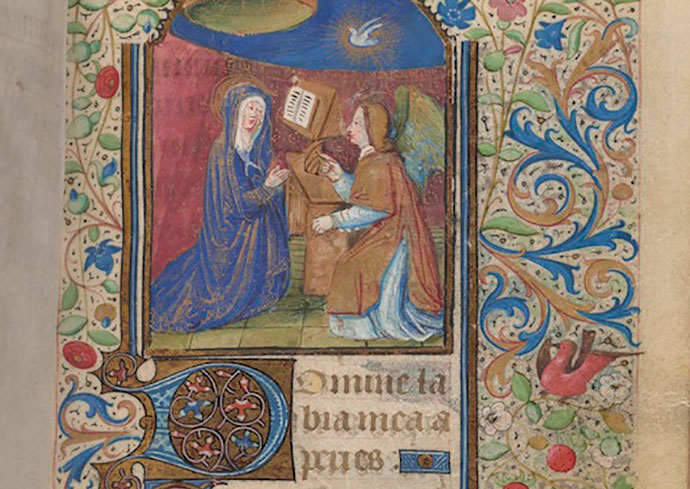 Domine la
bia mea a
peries